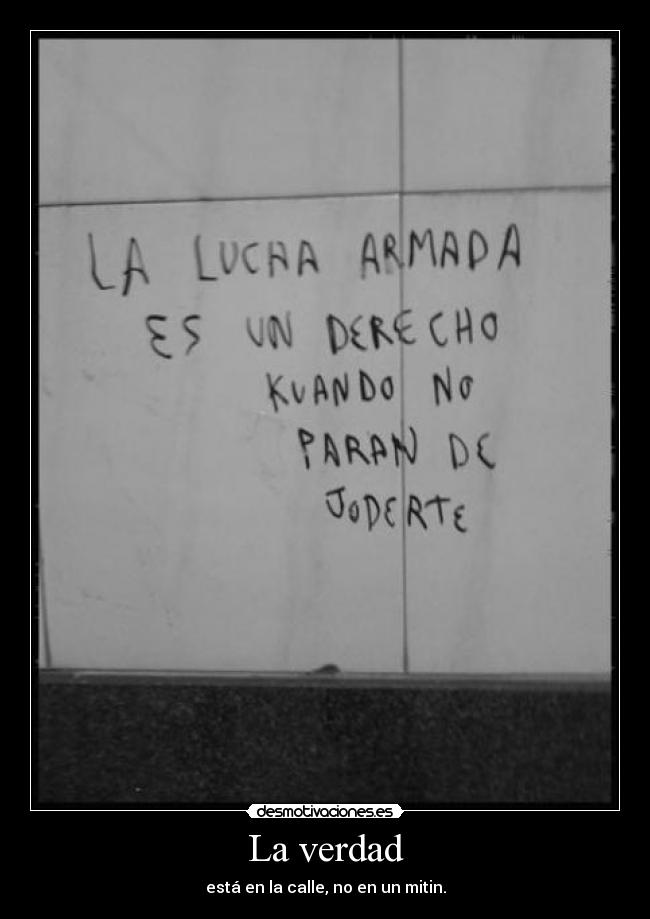 LA LUCHA ARMADA
ES UN DERECHO
KUANDO NO
PARAN DE
JODERTE
desmotivaciones.es
La verdad
está en la calle, no en un mitin.